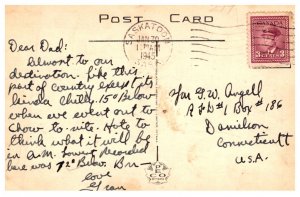 POST CARD
SASKATOON
JAN 29
1945
SASK
3 3
Dear Dad:
Almost to our
destination. Like this
part of country except its
kinda chilly. 15° Below
when we went out to
Chow to-nite. Hate to
think what it will be
in A.M. Lowest recorded
here was 72° Below. Brr—
Love
Fran
Mr. F. W. Angell
R F D #1 Box #186
Danielson
Connecticutt
U.S.A.
PECO